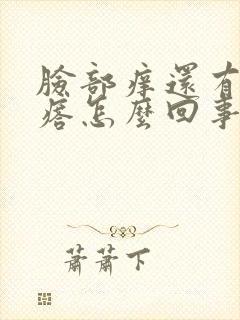 臉部痒還有
痞怎麼回事
蕭蕭下